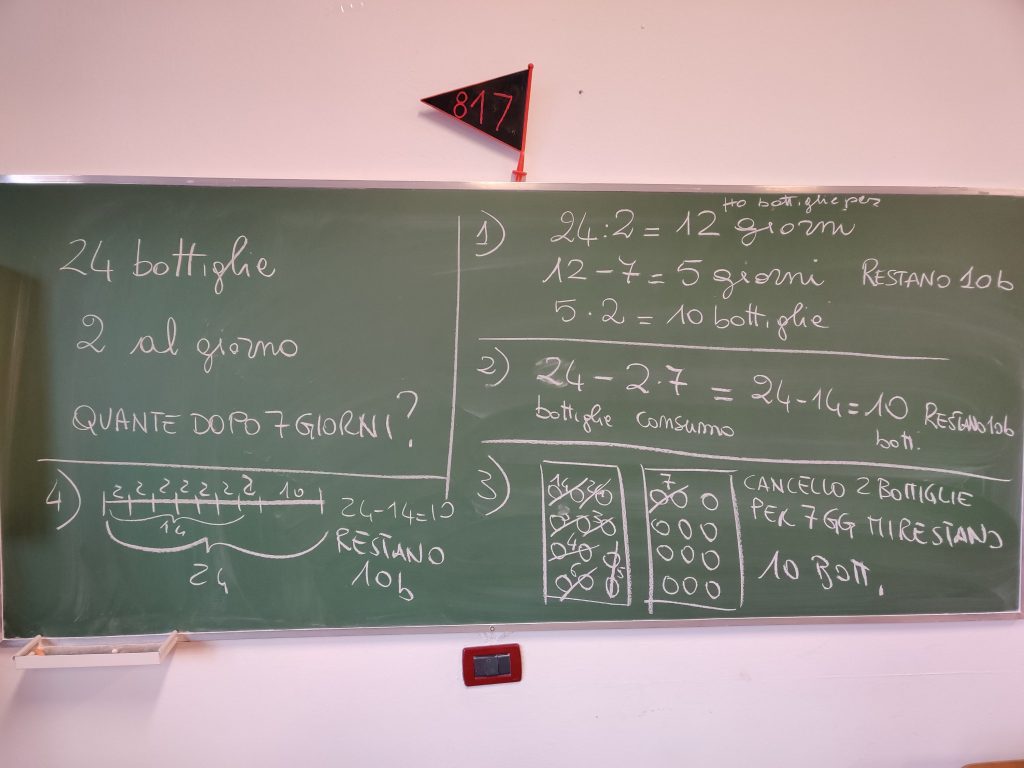 817
24 bottiglie
2 al giorno
QUANTE DOPO 7 GIORNI?
1)
Ho bottiglie per
24:2 = 12 giorni
12 - 7 = 5 giorni RESTANO 10b
5 · 2 = 10 bottiglie
2)
24 - 2·7 = 24-14=10 RESTANO 10b
bottiglie consumo bott.
3)
7
CANCELLO 2 BOTTIGLIE
PER 7GG MI RESTANO
10 BOTT.
4)
2 2 2 2 2 2 2 10
14
24
24-14=10
RESTANO
10b